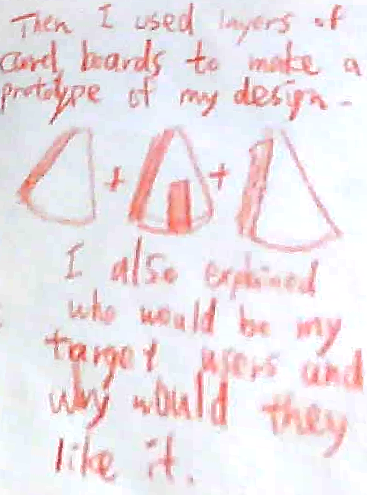 Then I used layers of
card boards to make a
prototype of my design.
+ +
I also explained
who would be my
target users and
why would they
like it.